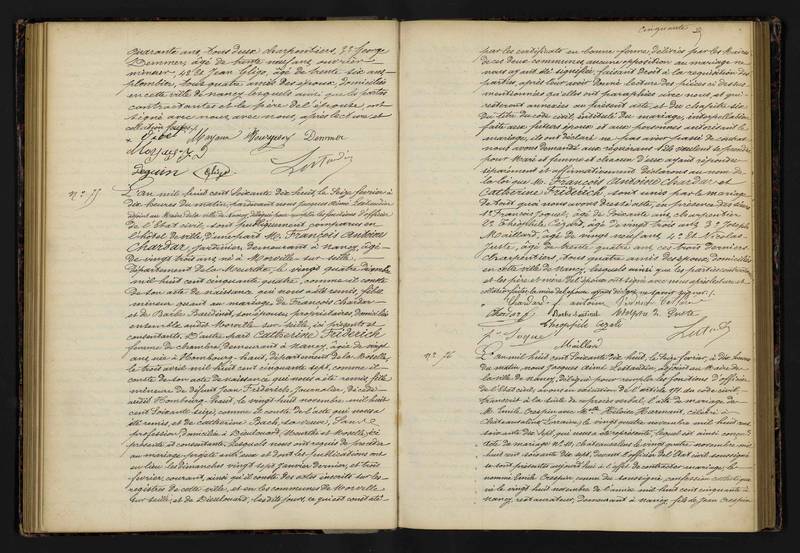 quarante ans, tous deux charpentiers, 3° George
Demmer, âgé de trente neuf ans, ouvrier
mineur, 4° et Jean Glize, âgé de trente six ans
plombier, tous quatre amis des époux, domiciliés
en cette ville de Nancy, lesquels ainsi que les parties
contractantes et le père de l'épouse, ont
signé avec nous, après lecture et
collation faites.
Demmer
N° 75
L'an mil huit cent soixante dix huit, le seize février à
dix heures du matin, pardevant nous Jacques Aimé
adjoint au Maire de la ville de Nancy, délégué pour remplir les fonctions d'officier
de l'Etat civil, sont publiquement comparus en
l'hôtel de ville, d'une part M. François Antoine
Chardar, jardinier demeurant à Nancy, âgé
de vingt trois ans, né à Morville sur seille,
département de la Meurthe, le vingt quatre
mil huit cent cinquante quatre, comme il conste
de son acte de naissance qui nous a été remis, fils
mineur quant au mariage de François Chardar
et de Barbe son épouse, propriétaires, domiciliés
ensemble audit Morville sur seille, ici présents et
consentants. D'autre part Catherine Friderich
femme de chambre, demeurant à Nancy, âgée de vingt
ans, née à Hombourg haut, département de la Moselle,
le trois avril mil huit cent cinquante sept, comme il
conste de son acte de naissance qui nous a été remis, fille
mineure de défunt Jean Friderich, journalier, décédé
audit Hombourg haut, le vingt huit novembre mil huit
cent soixante seize, comme le conste de l'acte qui nous a
été remis, et de Catherine Bach, sa veuve, sans
profession, domiciliée à Dieulouard, Meurthe et Moselle, ici
présente et consentante. Lesquels nous ont requis de procéder
au mariage projeté entre eux et dont les publications ont
eu lieu les dimanches vingt sept janvier dernier, et trois
février courant, ainsi qu'il conste des actes inscrits sur les
registres de cette ville, et en les communes de Morville
sur seille, et de Dieulouard, lesdits jours, ce qui est constaté
Cinquante
par les certificats en bonne forme, délivrés par les Maires
de ces deux communes, aucune opposition au mariage ne
nous ayant été signifiée, faisant droit à la réquisition des
parties après leur avoir donné lecture des pièces ci dessus
mentionnées qu'elles ont paraphées avec nous, et qui
resteront annexées au présent acte, et du chapitre six
du titre du code civil, intitulé du mariage, interpellation
faite aux futurs époux et aux personnes autorisant le
mariage, ils ont déclaré ne pas avoir passé de contrat
nous avons demandé aux requérants s'ils veulent se prendre
pour Mari et femme et chacun d'eux ayant répondu
séparément et affirmativement déclarons au nom de
la loi que M. François Antoine Chardar et
Catherine Friderich, sont unis par le mariage
De tout quoi nous avons dressé acte, en présence des sieurs
1° François Joquel, âgé de soixante ans, charpentier
2° Théophile âgé de vingt trois ans, 3° Joseph
Maillard, âgé de vingt neuf ans, 4° et Nicolas
Juste, âgé de trente quatre ans, ces trois derniers
charpentiers, tous quatre amis des époux, domiciliés
en cette ville de Nancy, lesquels ainsi que les parties contractantes
et les père et mère de l'époux ont signé avec nous après lecture et
Chardar antoine
Maillard
N° 76
L'an mil huit cent soixante dix huit, le seize février, à dix heures
du matin, nous Jacques Aimé adjoint au Maire de
la ville de Nancy, délégué pour remplir les fonctions d'officier
de l'Etat civil, avons en exécution de l'article 171 du code civil
transcrit à la suite de ce procès verbal, l'acte de mariage de
M. Emile Crespin avec Melle Héloïse Harmant, célébré à
Chateausalins Lorraine, le vingt quatre novembre mil huit cent
soixante dix sept, qui nous a été présenté, lequel est ainsi conçu:
Acte de mariage
huit cent soixante dix sept, devant l'officier de l'Etat civil soussigné
se sont présentés aujourd'hui à l'effet de contracter mariage, le
nommé Emile Crespin connu du soussigné, confession catholique
né le vingt huit novembre de l'année mil huit cent cinquante à
Nancy, restaurateur, demeurant à Nancy, fils de Jean Crespin